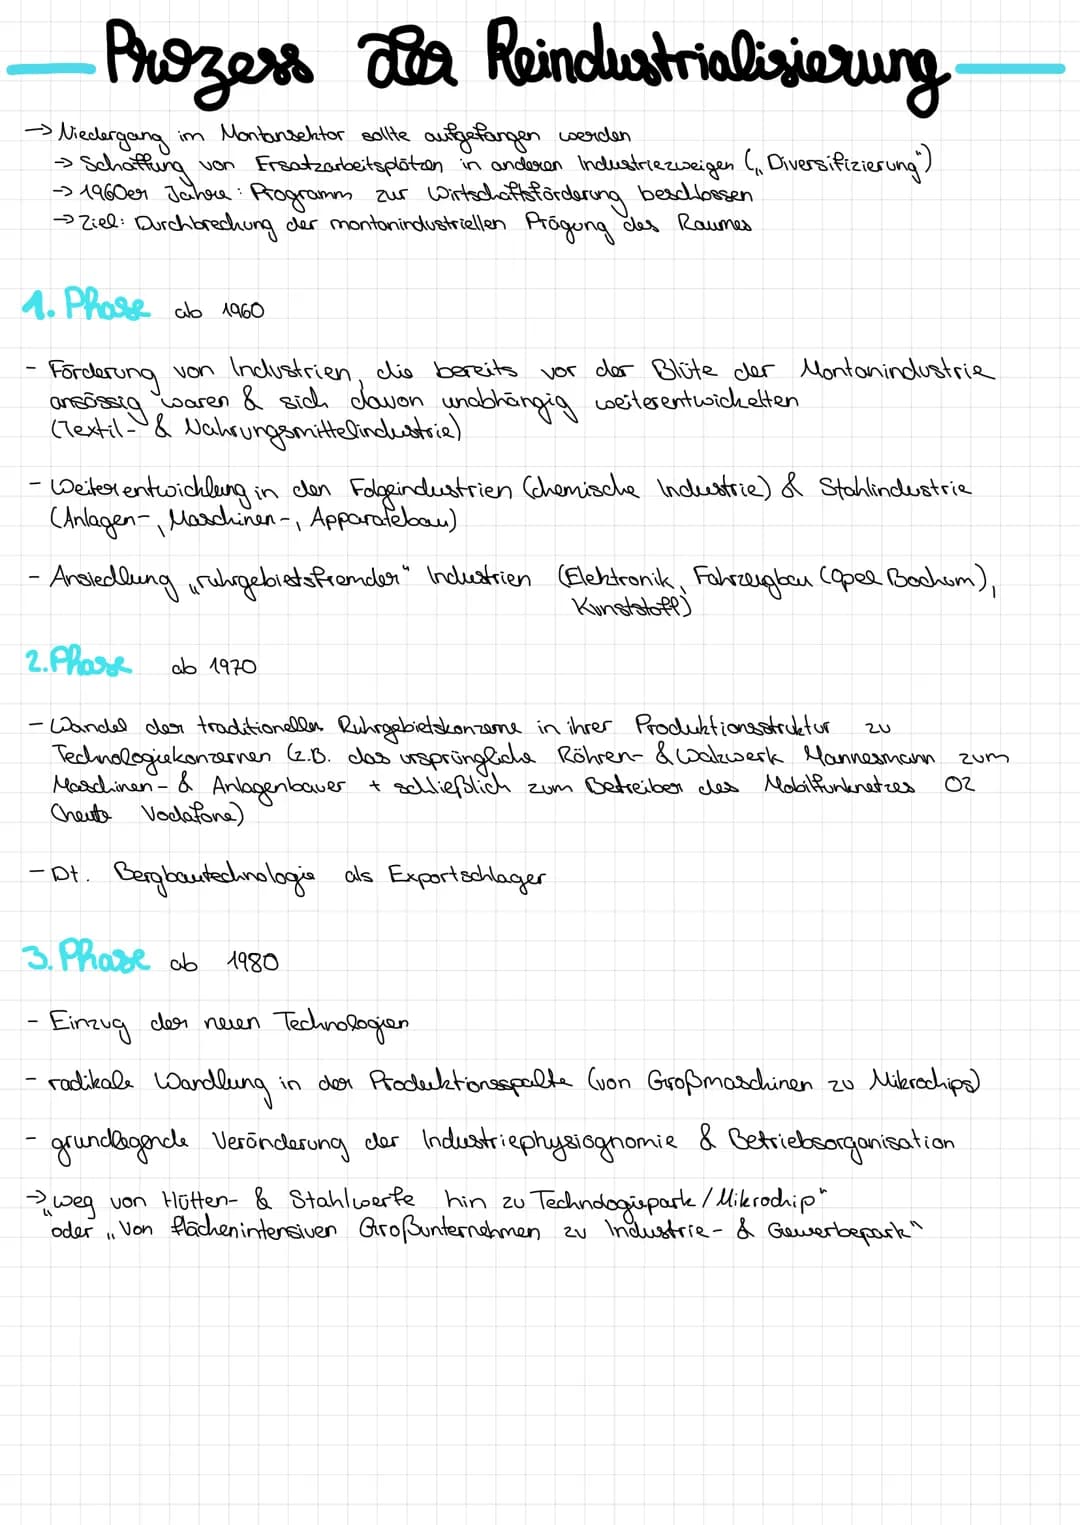 Prozess der Reindustrialisierung
→ Niedergang im Montansektor sollte aufgefangen werden
→ Schaffung von Ersatzarbeitsplätzen in anderen Industriezweigen („Diversifizierung“)
→ 1960er Jahre: Programm zur Wirtschaftsförderung beschlossen
→ Ziel: Durchbrechung der montanindustriellen Prägung des Raumes
1. Phase ab 1960
- Förderung von Industrien, die bereits vor der Blüte der Montanindustrie
ansässig waren & sich davon unabhängig weiterentwickelten
(Textil- & Nahrungsmittelindustrie)
- Weiterentwicklung in den Folgeindustrien (chemische Industrie) & Stahlindustrie
(Anlagen-, Maschinen-, Apparatebau)
- Ansiedlung „ruhrgebietsfremder“ Industrien (Elektronik, Fahrzeugbau (Opel Bochum),
Kunststoff)
2. Phase ab 1970
- Wandel der traditionellen Ruhrgebietskonzerne in ihrer Produktionsstruktur zu
Technologiekonzernen (z.B. das ursprüngliche Röhren- & Walzwerk Mannesmann zum
Maschinen- & Anlagenbauer + schließlich zum Betreiber des Mobilfunknetzes O2
(heute Vodafone)
- Dt. Bergbautechnologie als Exportschlager
3. Phase ab 1980
- Einzug der neuen Technologien
- radikale Wandlung in der Produktionsspalte (von Großmaschinen zu Mikrochips)
- grundlegende Veränderung der Industriephysiognomie & Betriebsorganisation
→ „weg von Hütten- & Stahlwerke hin zu Technologiepark/Mikrochip“
oder „Von flächenintensiven Großunternehmen zu Industrie- & Gewerbepark“